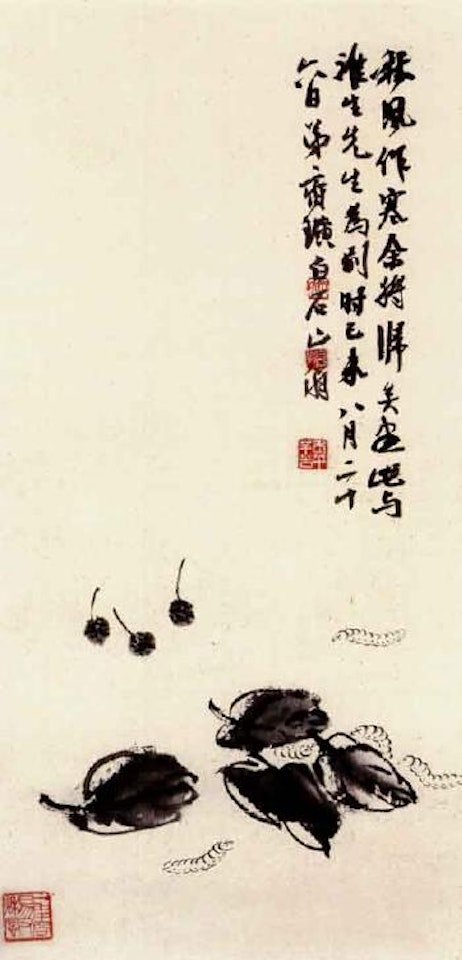 秋風作寒余將歸矣畫此與
淮生先生為別時己未八月二十
六日弟齊璜白石山翁